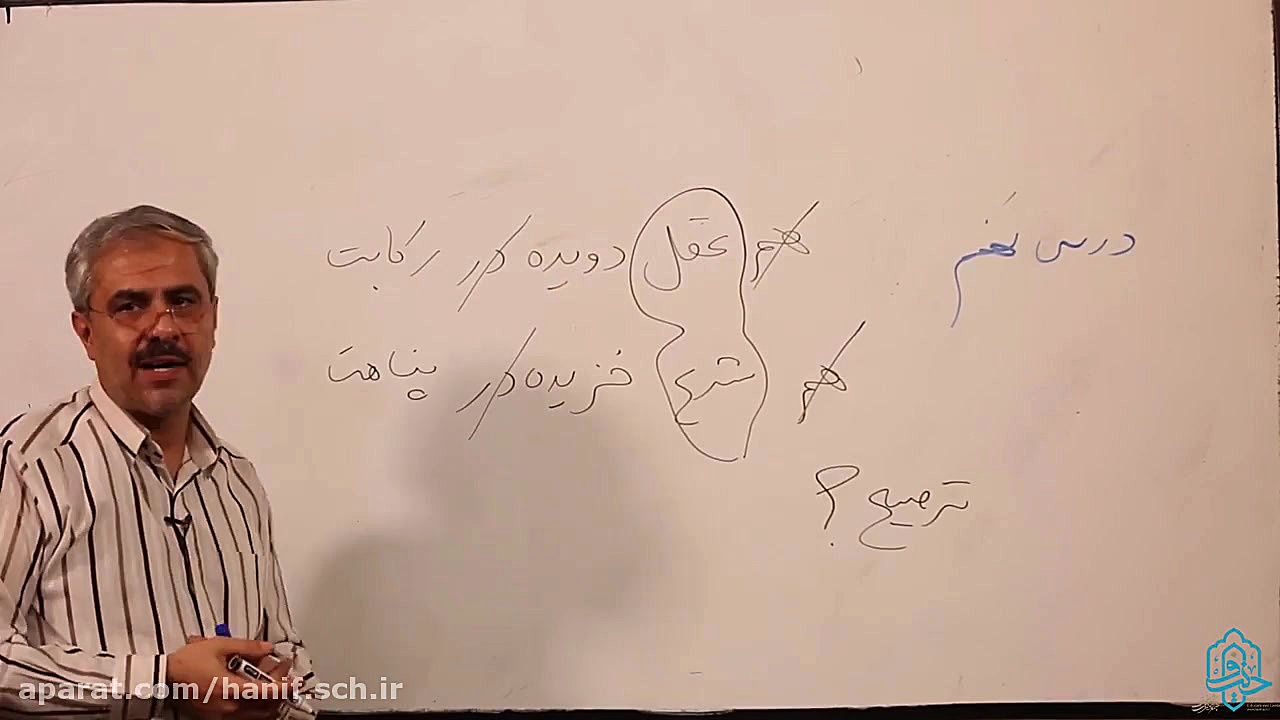 درس نهم
هم عقل دویده در رکابت
هم شرع خزیده در پناهت
ترصیع؟
aparat.com/hanif.sch.ir
حنیف